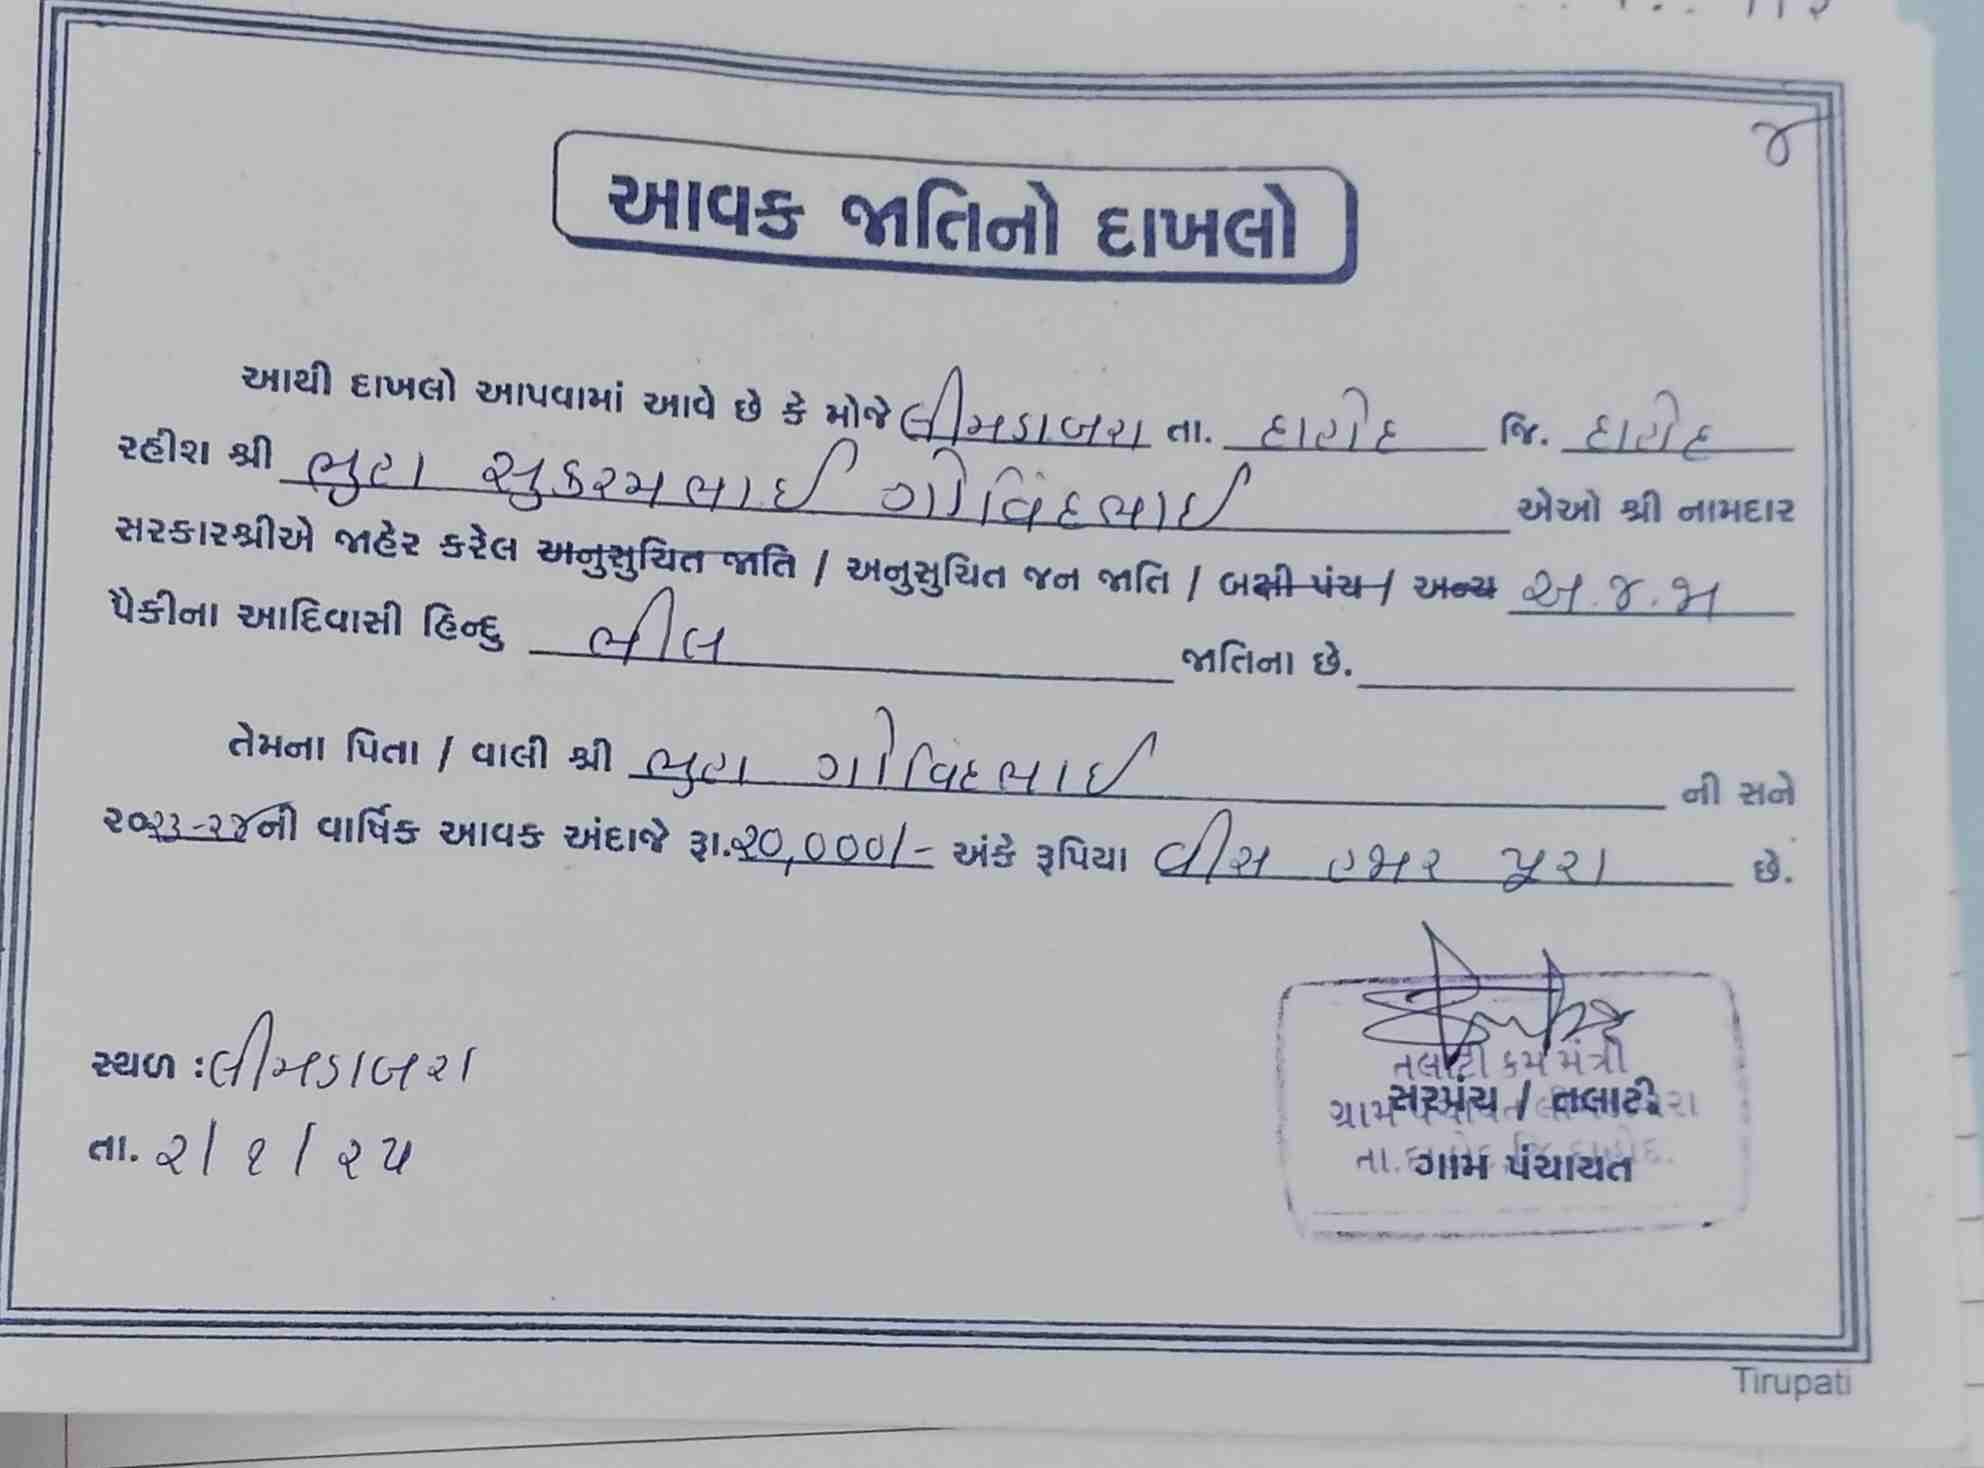 ૪
આવક જાતિનો દાખલો
આથી દાખલો આપવામાં આવે છે કે મોજે લીમડાબરા તા. દાહોદ જિ. દાહોદ
રહીશ શ્રી ભુરા સુકરમભાઈ ગોવિંદભાઈ એઓ શ્રી નામદાર
સરકારશ્રીએ જાહેર કરેલ અનુસુચિત જાતિ / અનુસુચિત જન જાતિ / બક્ષી પંચ / અન્ય અ.જ.જા
પૈકીના આદિવાસી હિન્દુ ભીલ જાતિના છે.
તેમના પિતા / વાલી શ્રી ભુરા ગોવિંદભાઈ ની સને
૨૦૨૩-૨૪ની વાર્ષિક આવક અંદાજે રૂા.૨૦,૦૦૦/- અંકે રૂપિયા વીસ હજાર પૂરા છે.
સ્થળ : લીમડાબરા
તા. ૨/૧/૨૫
તલાટી કમ મંત્રી
સરપંચ / તલાટી
ગ્રામ પંચાયત
Tirupati